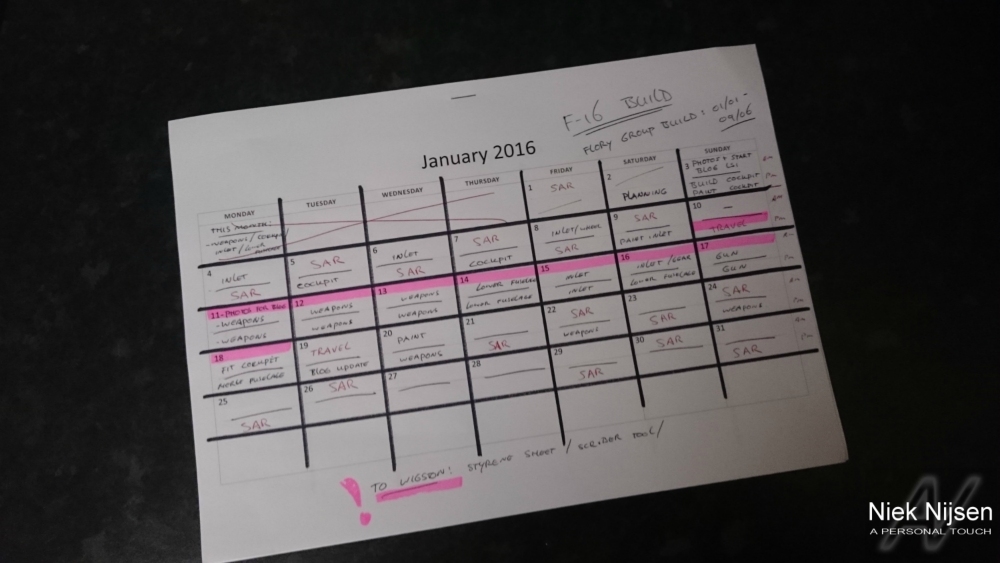 F-16 BUILD
FLORY GROUP BUILD: 01/01 -
09/06
January 2016
MONDAY TUESDAY WEDNESDAY THURSDAY FRIDAY SATURDAY SUNDAY
THIS MONTH:
- WEAPONS / COCKPIT
INLET /
1 SAR
2
PLANNING
3 PHOTOS + START
BLOG
BUILD COCKPIT
PAINT COCKPIT
am
pm
4
INLET
SAR
5
SAR
COCKPIT
6
INLET
SAR
7
SAR
COCKPIT
8
INLET/
SAR
9
SAR
PAINT INLET
10
-
TRAVEL
am
pm
11 - PHOTOS FOR BLOG
- WEAPONS
- WEAPONS
12
WEAPONS
WEAPONS
13
WEAPONS
WEAPONS
14
LOWER FUSELAGE
LOWER FUSELAGE
15
INLET
INLET
16
INLET / GEAR
LOWER FUSELAGE
17
GUN
GUN
am
pm
18
FIT COCKPIT
FUSELAGE
19
TRAVEL
BLOG UPDATE
20
PAINT
WEAPONS
21
SAR
22
SAR
WEAPONS
23
SAR
24
SAR
WEAPONS
am
pm
25
SAR
26
SAR
27
28
29
SAR
30
SAR
31
SAR
am
pm
! TO WIGSTON! STYRENE SHEET / SCRIBER TOOL /
Niek Nijsen
A PERSONAL TOUCH